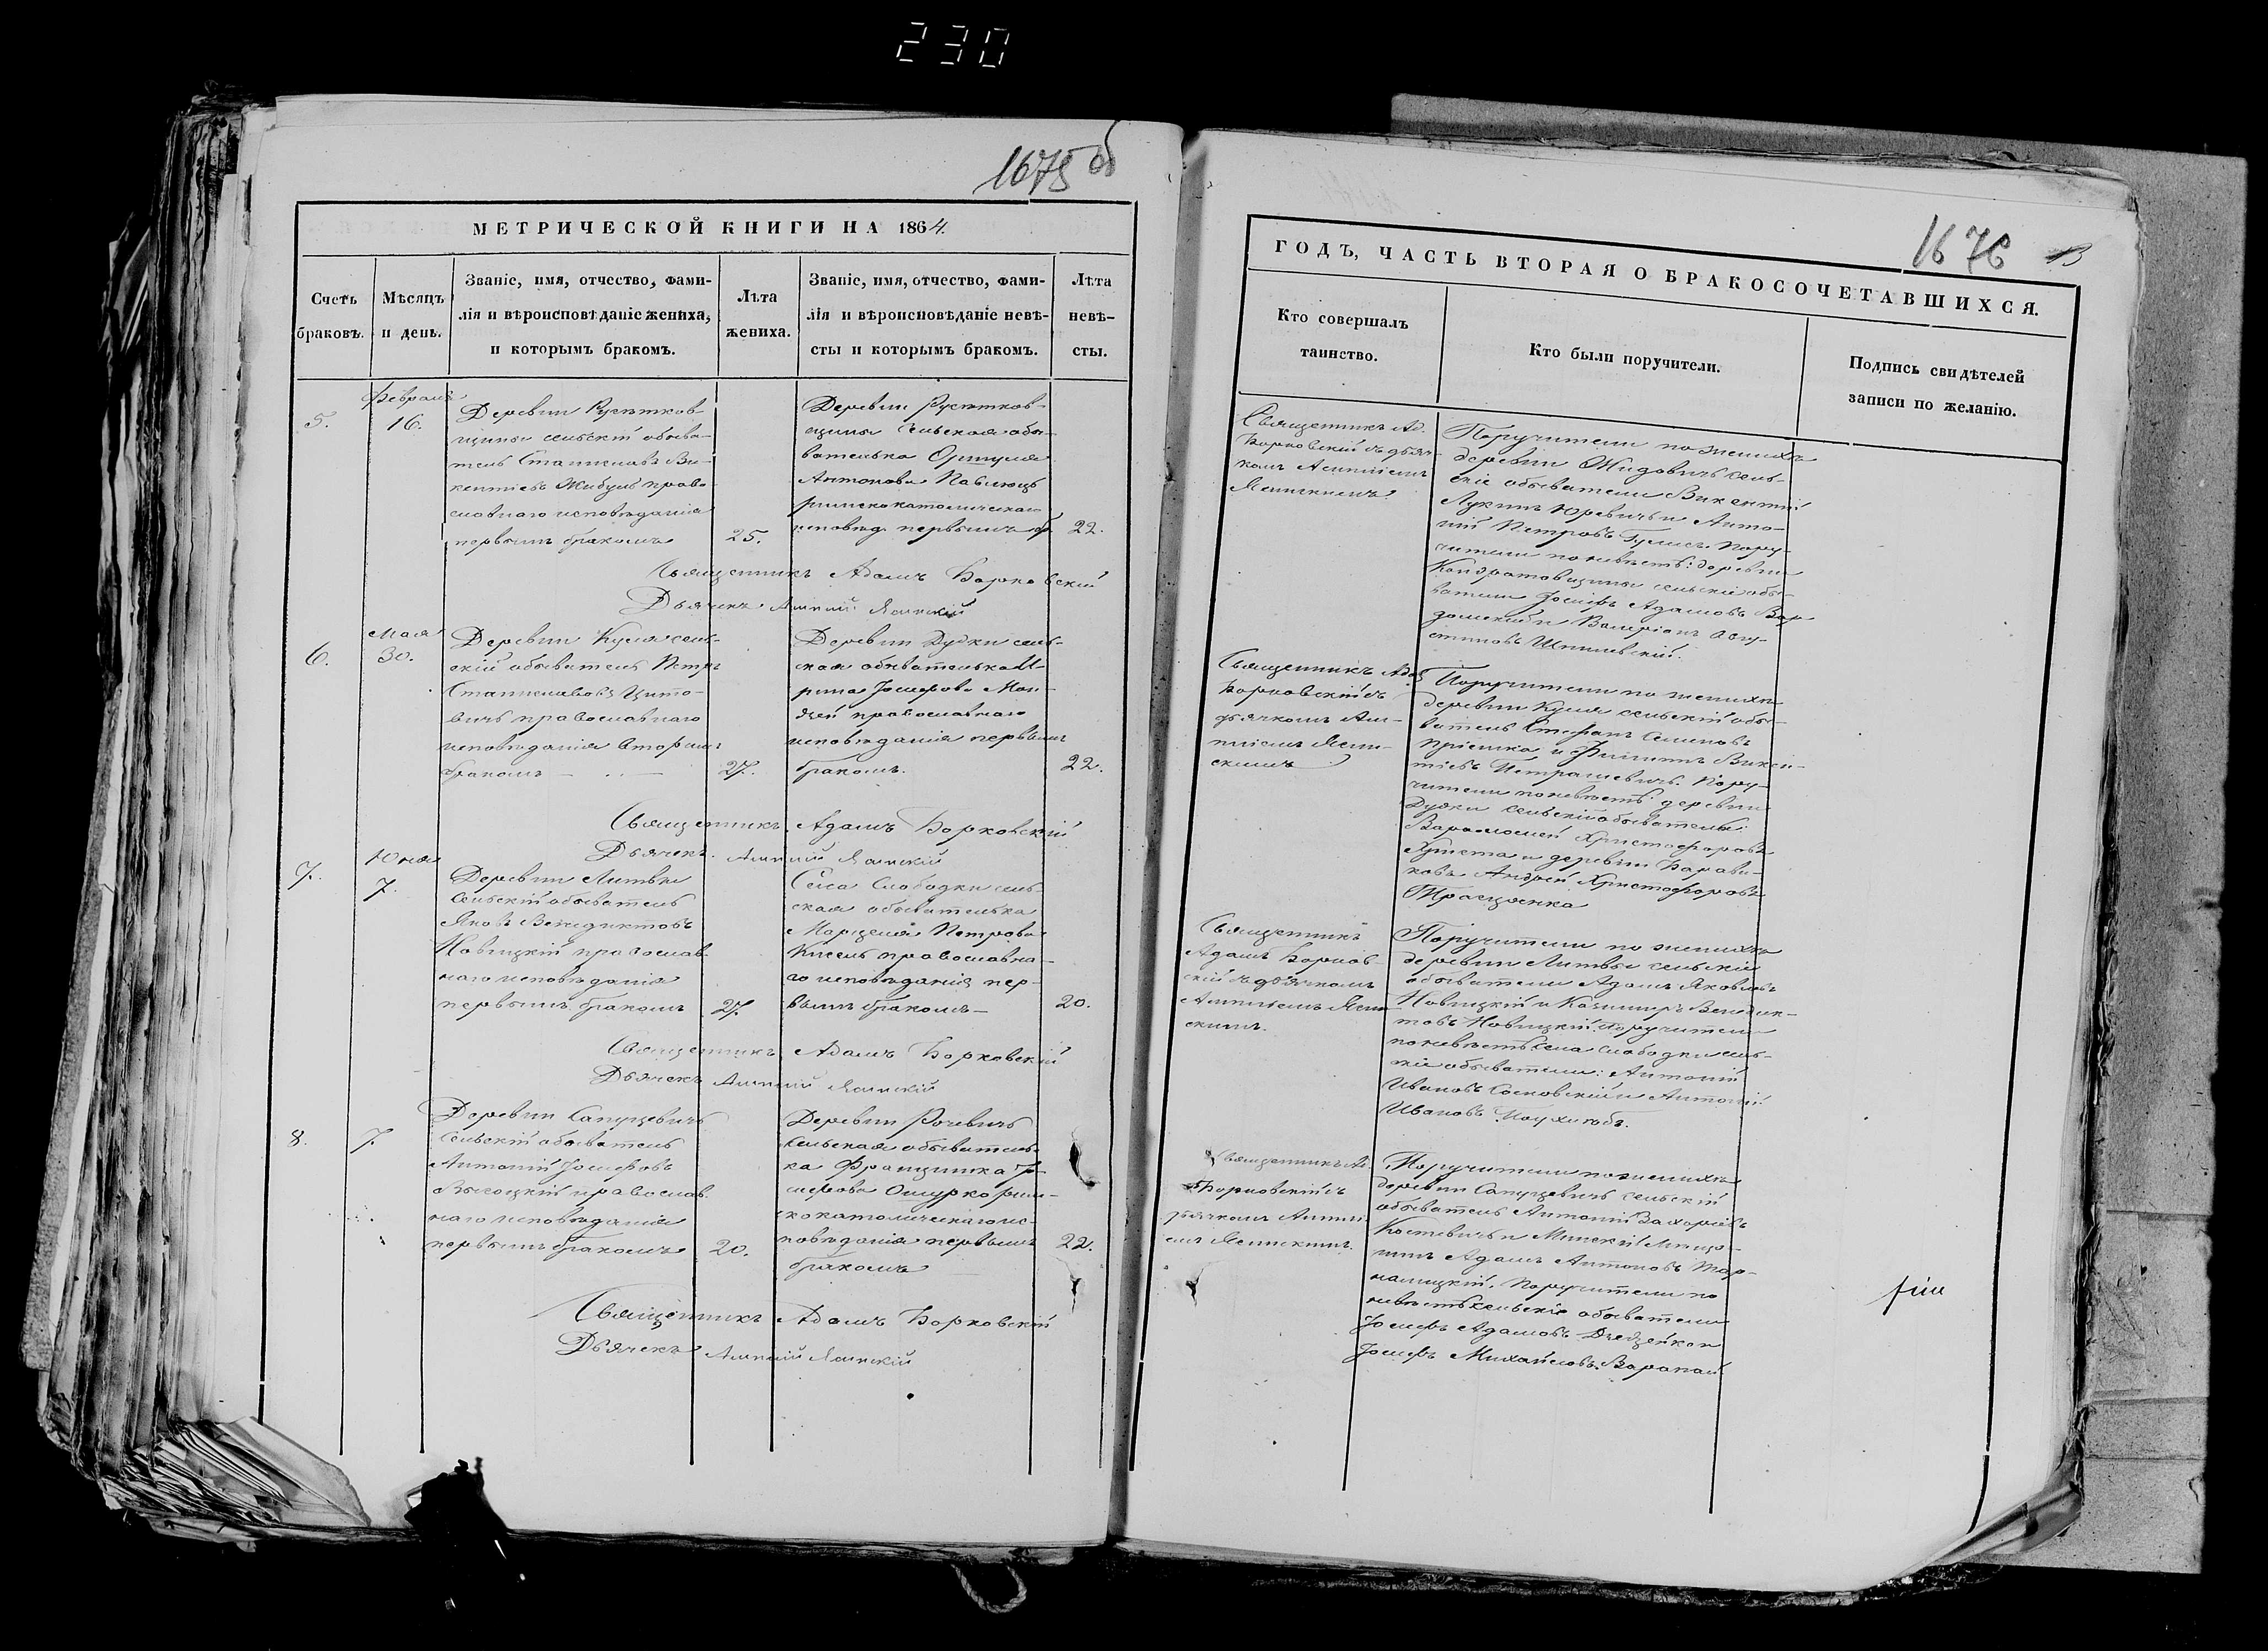 230
1675 об
МЕТРИЧЕСКОЙ КНИГИ НА 1864.
Счетъ браковъ.
Мѣсяцъ и день.
Званіе, имя, отчество, фами-
лія и вѣроисповѣданіе жениха,
и которымъ бракомъ.
Лѣта жениха.
Званіе, имя, отчество, фами-
лія и вѣроисповѣданіе невѣ-
сты и которымъ бракомъ.
Лѣта невѣ-
сты.
5.
Февраля
16.
Деревни
щины сельскій обыва-
тель Станиславъ Ви-
кентіевъ Жибуль право-
славнаго исповѣданія
первымъ бракомъ
25.
Деревни
щины сельская обы-
вателька
Антонова Павлюць
римскокатолическаго
исповѣд. первымъ бр.
22.
Священникъ Адамъ Борковскій
Дьячекъ
6.
Мая
30.
Деревни Куля сель-
скій обыватель Петръ
Станиславовъ Цито-
вичъ православнаго
исповѣданія вторымъ
бракомъ
27.
Деревни Дудки сель-
ская обывателька И-
рина Іосифова Мои-
сей православнаго
исповѣданія первымъ
бракомъ.
22.
Священникъ Адамъ Борковскій
Дьячекъ
7.
Юня
7.
Деревни Литвы
Сельскій обыватель
Яковъ Венедиктовъ
Новицкій православ-
наго исповѣданія
первымъ бракомъ
27.
Села Слободки сель-
ская обывателька
Марцеля Петрова
Кисель православна-
го исповѣданія пер-
вымъ бракомъ—
20.
Священникъ Адамъ Борковскій
Дьячекъ
8.
7.
Деревни Сапуцевичъ
Сельскій обыватель
Антоній Іосифовъ
Высоцкій православ-
наго исповѣданія
первымъ бракомъ
20.
Деревни Рочевичъ
сельская обыватель-
ка Францишка Іо-
сифова Ошурко рим-
скокатолическаго ис-
повѣданія первымъ
бракомъ
22.
Священникъ Адамъ Борковскій
Дьячекъ
1676
ГОДЪ, ЧАСТЬ ВТОРАЯ О БРАКОСОЧЕТАВШИХСЯ.
Кто совершалъ
таинство.
Кто были поручители.
Подпись свидѣтелей
записи по желанію.
Священникъ Ад.
Борковскій съ дьяч-
комъ
Поручители по женихѣ
деревни Жидовичъ сель-
скіе обыватели Викентій
Лукинъ Юревичъ и Анто-
ній Петровъ Пору-
чители по невѣстѣ: деревни
Кондратовщины сельскіе обы-
ватели Іосифъ Адамовъ
и Валеріанъ Авгу-
стиновъ Шпилевскій.
Священникъ Адамъ
Борковскій съ
дьячкомъ
Поручители по женихѣ
деревни Куля сельскій обы-
ватель Стефанъ Семеновъ
и Филиппъ Викен-
тіевъ Петрашевичъ. Пору-
чители по невѣстѣ: деревни
Дудки сельскій обыватель
Варфоломей Христофоровъ
и деревни
Андрей Христофоровъ
Священникъ
Адамъ Борков-
скій съ дьячкомъ
Поручители по женихѣ
деревни Литвы сельскіе
обыватели Адамъ Яковлевъ
Новицкій и Казимиръ Венедик-
товъ Новицкій. Поручители
по невѣстѣ села Слободки сель-
скіе обыватели: Антоній
Ивановъ Сосновскій и Антоній
Ивановъ
Священникъ Ад.
Борковскій съ
дьячкомъ
Поручители по женихѣ
деревни Сапуцевичъ сельскій
обыватель Антоній Захаріевъ
Костевичъ и Минскій мѣща-
нинъ Адамъ Антоновъ Тар-
налицкій. Поручители по
невѣстѣ сельскіе обыватели
Іосифъ Адамовъ
Іосифъ Михайловъ Варапай